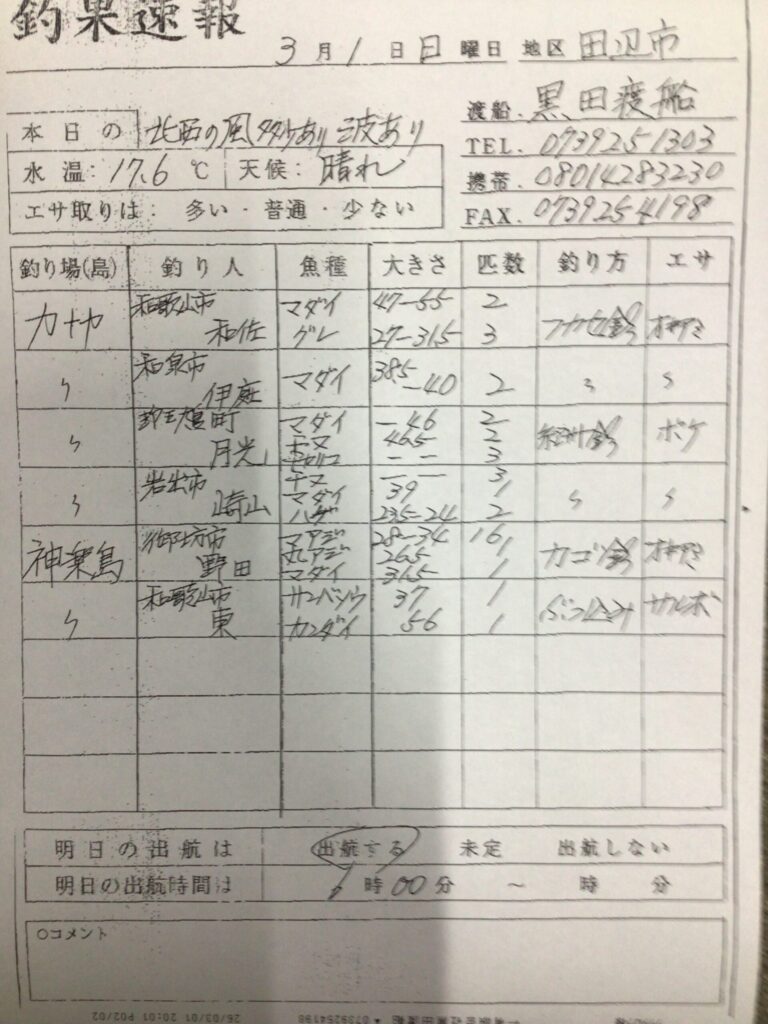 釣果速報
3月1日日曜日 地区 田辺市
渡船. 黒田渡船
本日の 北西の風 多少あり 波あり
TEL. 0739251303
水温: 17.6 ℃ 天候: 晴れ
携帯. 08014283230
エサ取りは: 多い・普通・少ない
FAX. 0739254198
釣り場(島) 釣り人 魚種 大きさ 匹数 釣り方 エサ
カナヤ 和歌山市 マダイ 47-55 2
和佐 グレ 27-31.5 3 フカセ釣 オキアミ
〃 和泉市 伊庭 マダイ 38.5-40 2 〃 〃
〃 マダイ -46 2
月光 チヌ 46.5 2 紀州釣 ボケ
-- 3
〃 岩出市 チヌ -- 3
崎山 マダイ 39 1 〃 〃
ハゲ 23.5-24 2
神楽島 御坊市 マアジ 28-34 16
野田 丸アジ 26.5 1 カゴ釣 オキアミ
マダイ 31.5 1
〃 和歌山市 サンバソウ 37 1 ぶっ込み サルボ
東 カンダイ 56 1
明日の出航は 出航する 未定 出航しない
明日の出航時間は 6時00分 ~ 時 分
○コメント
26/03/01 20:01 P02/02
0739254198